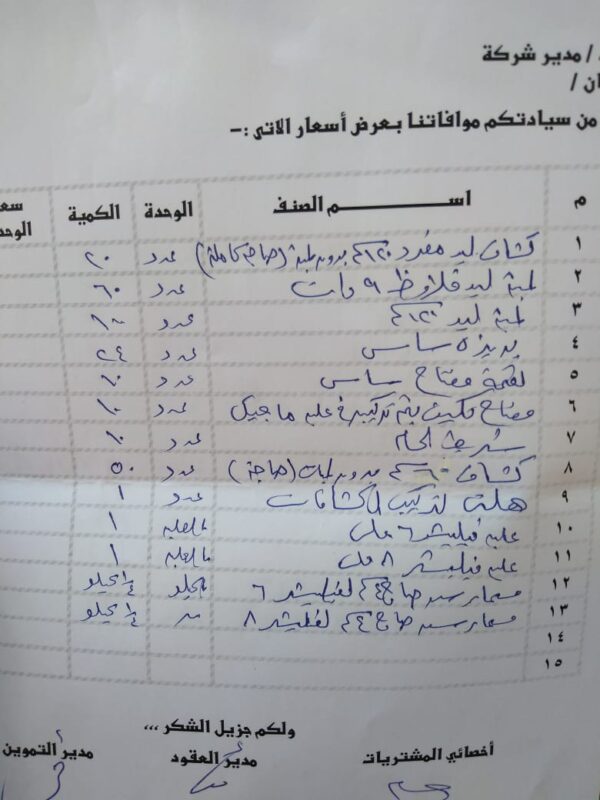 / مدير شركة
ان /
من سيادتكم موافاتنا بعرض أسعار الاتى :-
م اسم الصنف الوحدة الكمية سعر الوحد
١ كشاف ليد مفرد ١٢٠ سم بدون لمبة (صاج كاملة) عدد ٢٠
٢ لمبة ليد قلاوظ ٩ وات عدد ٦٠
٣ لمبة ليد ١٢٠ سم عدد
٤ بريزة ساسى عدد ٢٤
٥ لقمة مفتاح ساسى عدد
٦ مفتاح تكييف يتم تركيبة فى علبه ماجيك عدد ١٠
٧ شريط لحام عدد ١٠
٨ كشاف ٦٠ سم بدون لمبات (صاج) عدد ٥٠
٩ لتركيب الكشافات عدد ١
١٠ علبه فيشر ٦ ملى بالعلبه ١
١١ علبه فيشر ٨ ملى بالعلبه ١
١٢ مسمار صاج ٤ سم لفيشر ٦ بالكيلو ١/٤ كيلو
١٣ مسمار صاج ٤ سم لفيشر ٨ ١/٤ كيلو
١٤
١٥
ولكم جزيل الشكر ،،،
أخصائي المشتريات مدير العقود مدير التموين